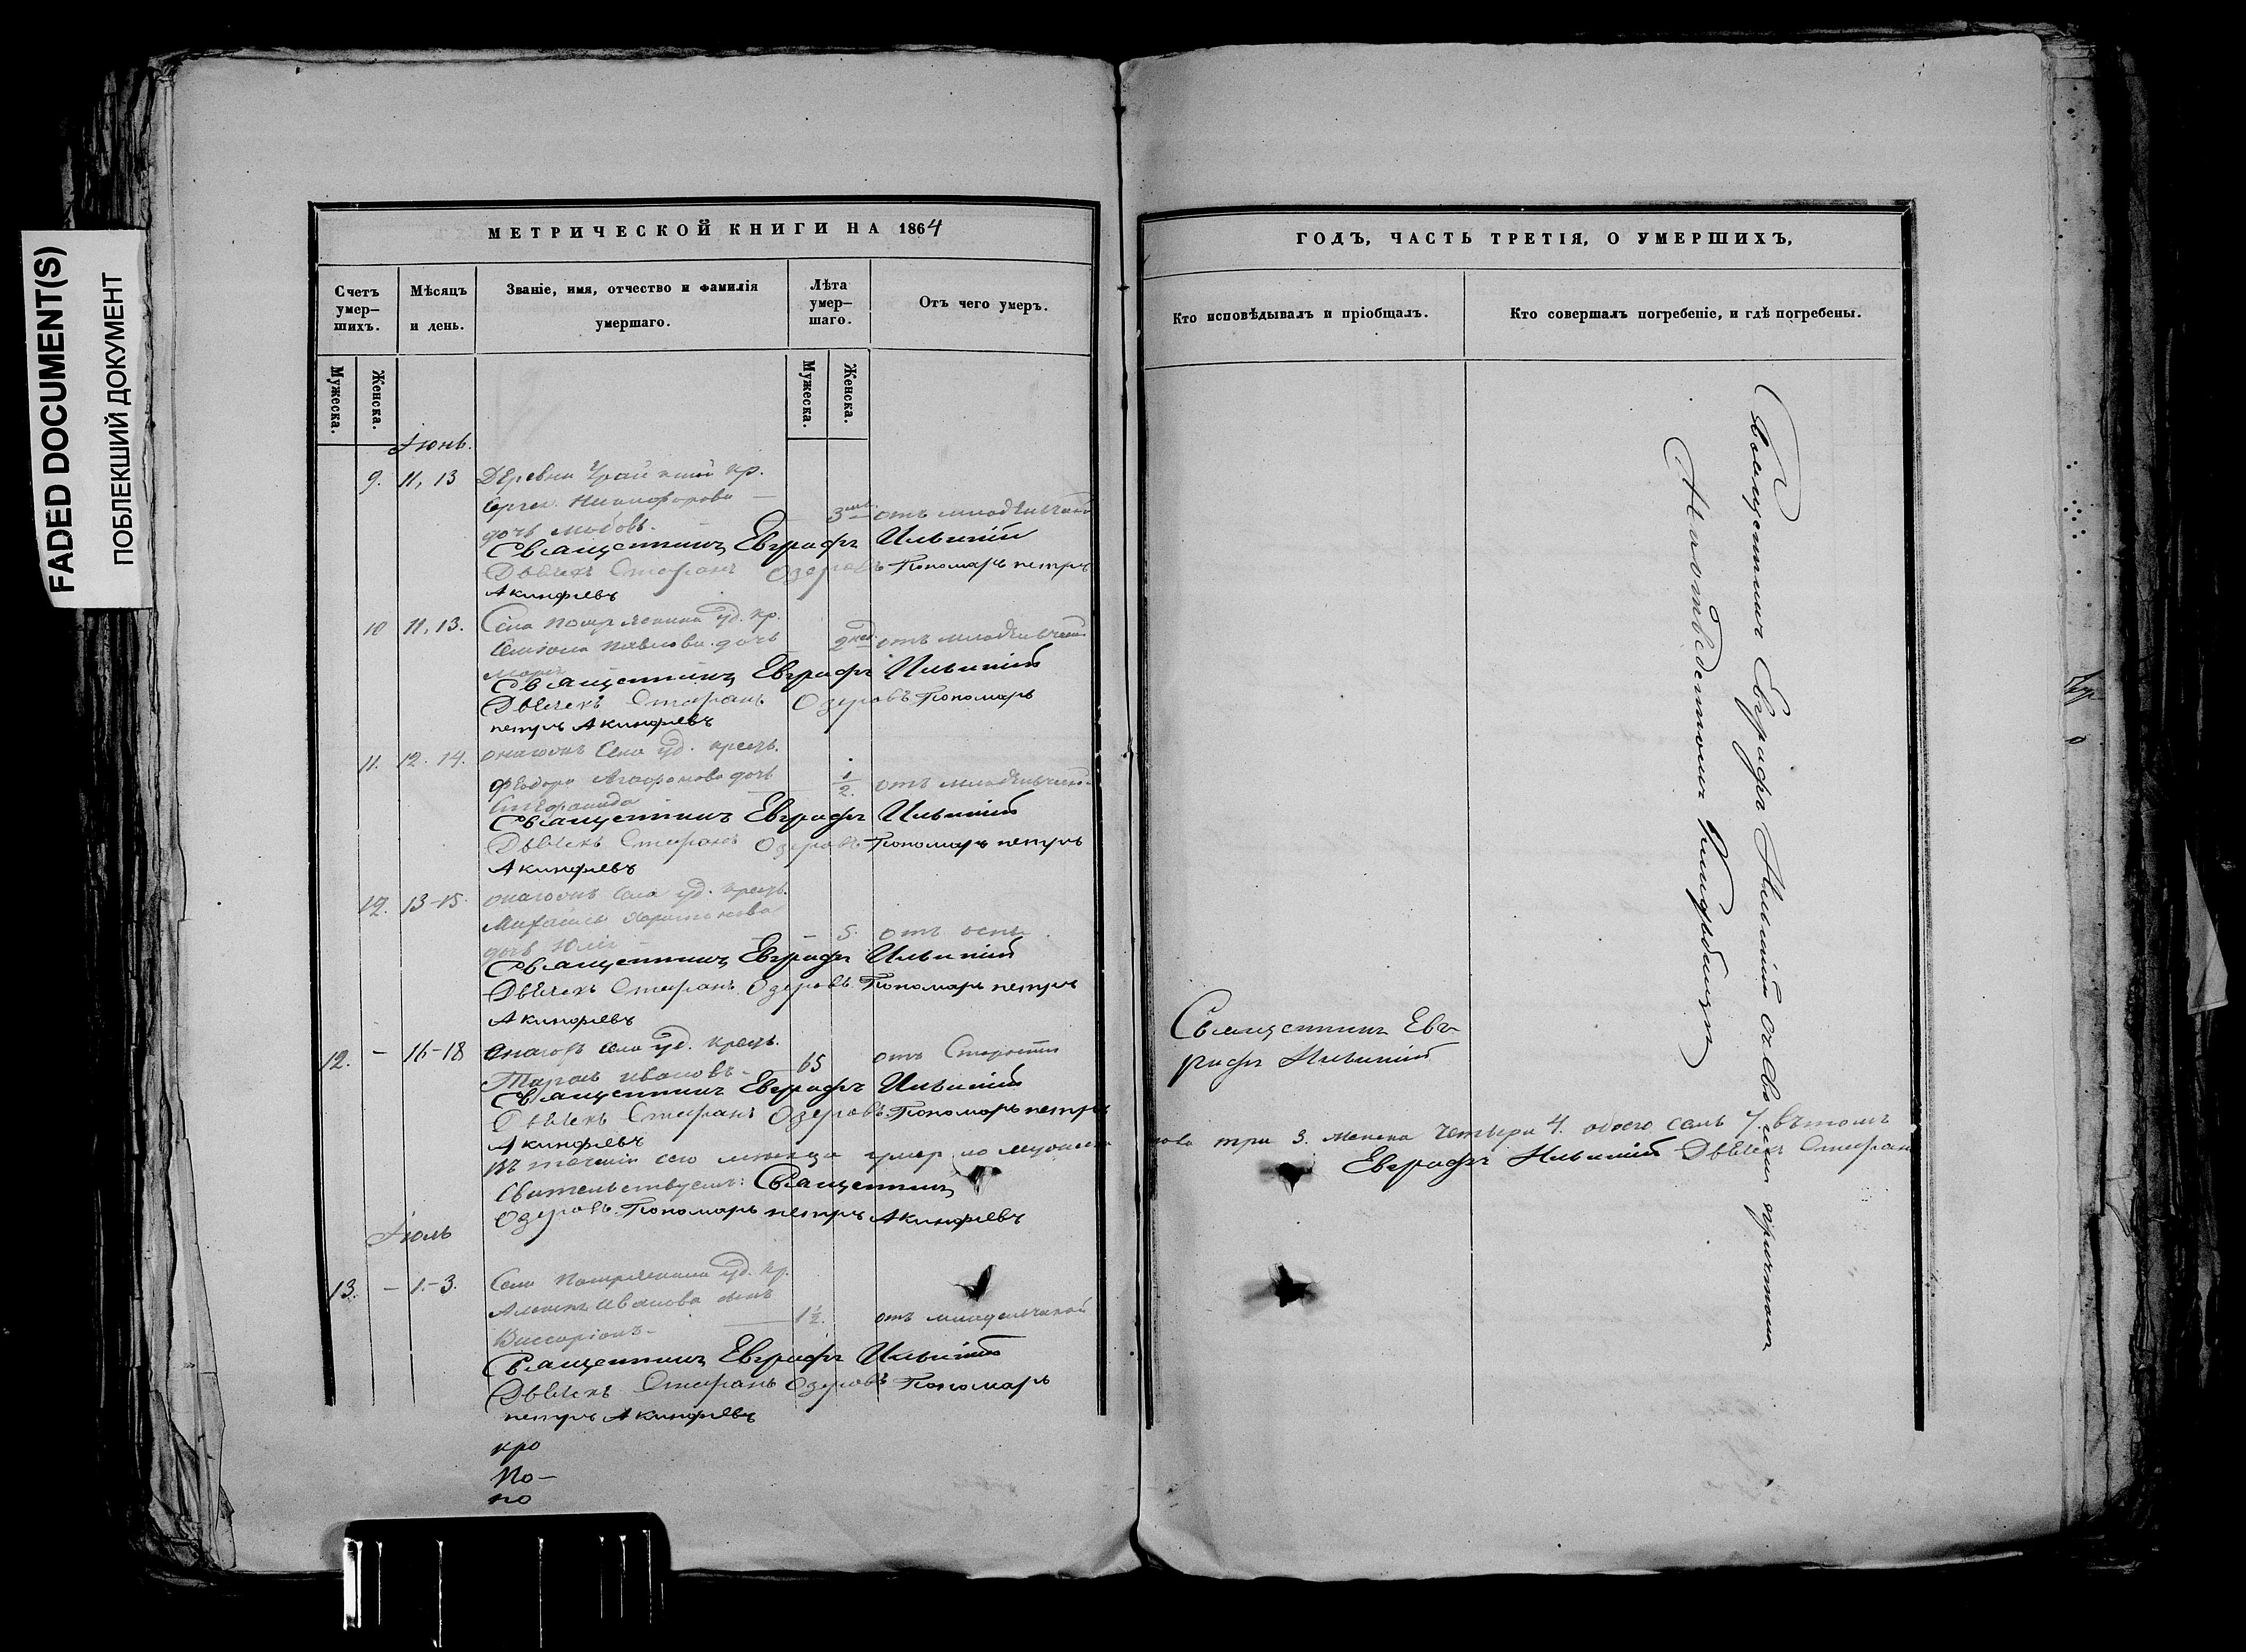 FADED DOCUMENT(S)
ПОБЛЕКШИЙ ДОКУМЕНТ
МЕТРИЧЕСКОЙ КНИГИ НА 1864
Счетъ умер-шихъ.
Мѣсяцъ и день.
Званіе, имя, отчество и фамилія умершаго.
Лѣта умер-шаго.
Отъ чего умеръ.
Мужеска.
Женска.
Мужеска.
Женска.
Іюнь.
9. 11, 13 Деревни кр.
Сергея Никифорова
дочь Любовь. 3 отъ младенческой
Священникъ Евграфъ Ильинскій
Дьячекъ Стефанъ Озеровъ Пономарь петръ
Акинфіевъ
10 11, 13. Села уд. кр.
Павлова дочь 2 нед. отъ младенческой
Священникъ Евграфъ Ильинскій
Дьячекъ Стефанъ Озеровъ Пономарь
петръ Акинфіевъ
11. 12. 14. онагожъ Села уд. крест.
Феодора Агафонова дочь 1/2. отъ младенческой
Священникъ Евграфъ Ильинскій
Дьячекъ Стефанъ Озеровъ Пономарь петръ
Акинфіевъ
12. 13-15. онагожъ Села уд. крест.
Михаила Харитонова
дочь Юлія 5. отъ оспы
Священникъ Евграфъ Ильинскій
Дьячекъ Стефанъ Озеровъ Пономарь петръ
Акинфіевъ
12. – 16-18 онагожъ села уд. крест.
Тарасъ Ивановъ 65 отъ Старости
Священникъ Евграфъ Ильинскій
Дьячекъ Стефанъ Озеровъ Пономарь петръ
Акинфіевъ
Въ теченіи сего месяца умер. по мужеска
Свительствуемъ: Священникъ
Озеровъ Пономарь петръ Акинфіевъ
Іюль
13. – 1.-3. Села уд. кр.
Иванова сынъ
Виссаріонъ 1 1/2. отъ младенческой
Священникъ Евграфъ Ильинскій
Дьячекъ Стефанъ Озеровъ Пономарь
петръ Акинфіевъ
кро
По-
по
ГОДЪ, ЧАСТЬ ТРЕТІЯ, О УМЕРШИХЪ,
Кто исповѣдывалъ и пріобщалъ.
Кто совершалъ погребеніе, и гдѣ погребены.
Священникъ Евграфъ Ильинскій со всемъ причтомъ
На отведенномъ Кладбищѣ
Священникъ Ев-
графъ Ильинскій
три 3. женска четыри 4. обоего семь 7. въ томъ
Евграфъ Ильинскій Дьячекъ Стефанъ